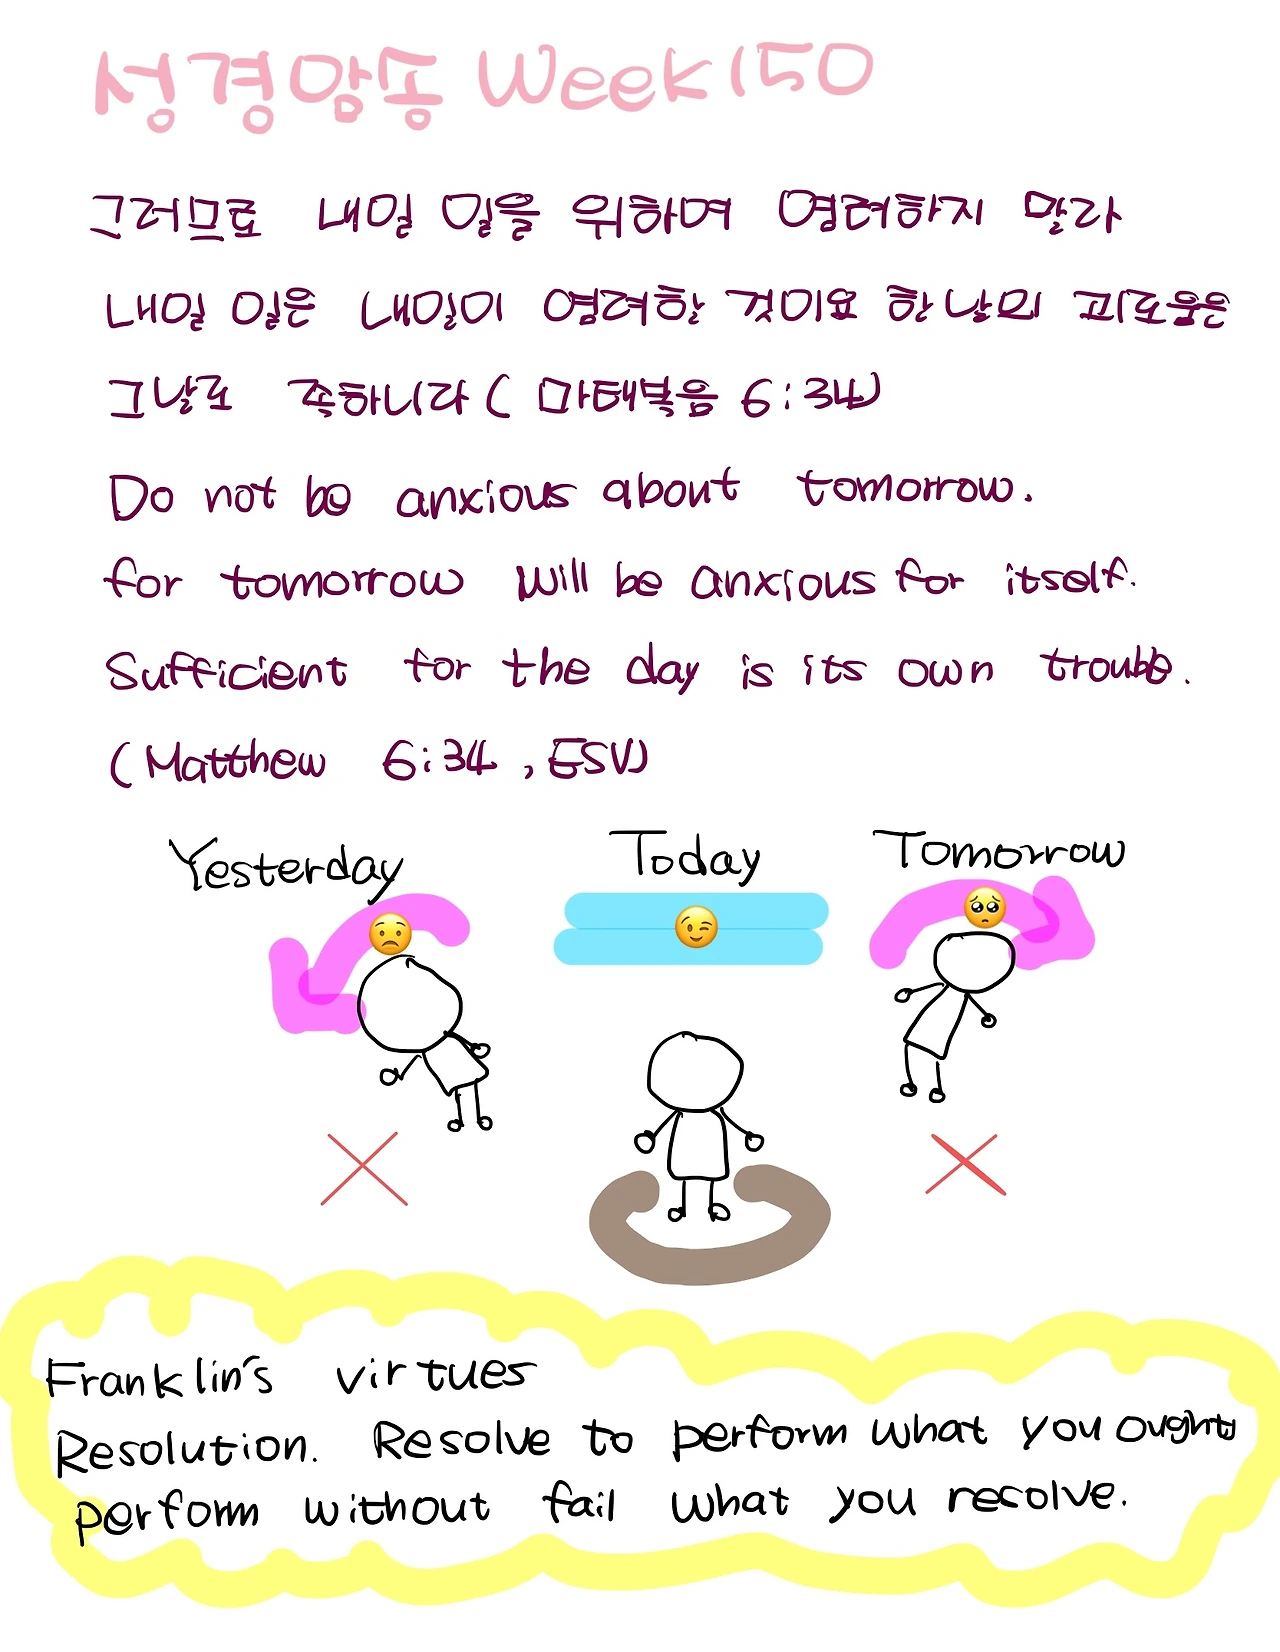 성경암송 Week150
그러므로 내일 일을 위하여 염려하지 말라
내일 일은 내일이 염려할 것이요 한 날의 괴로움은
그날로 족하니라 (마태복음 6:34)
Do not be anxious about tomorrow.
for tomorrow will be anxious for itself.
Sufficient for the day is its own trouble.
(Matthew 6:34, ESV)
Yesterday Today Tomorrow
Franklin's virtues
Resolution. Resolve to perform what you ought
perform without fail what you resolve.